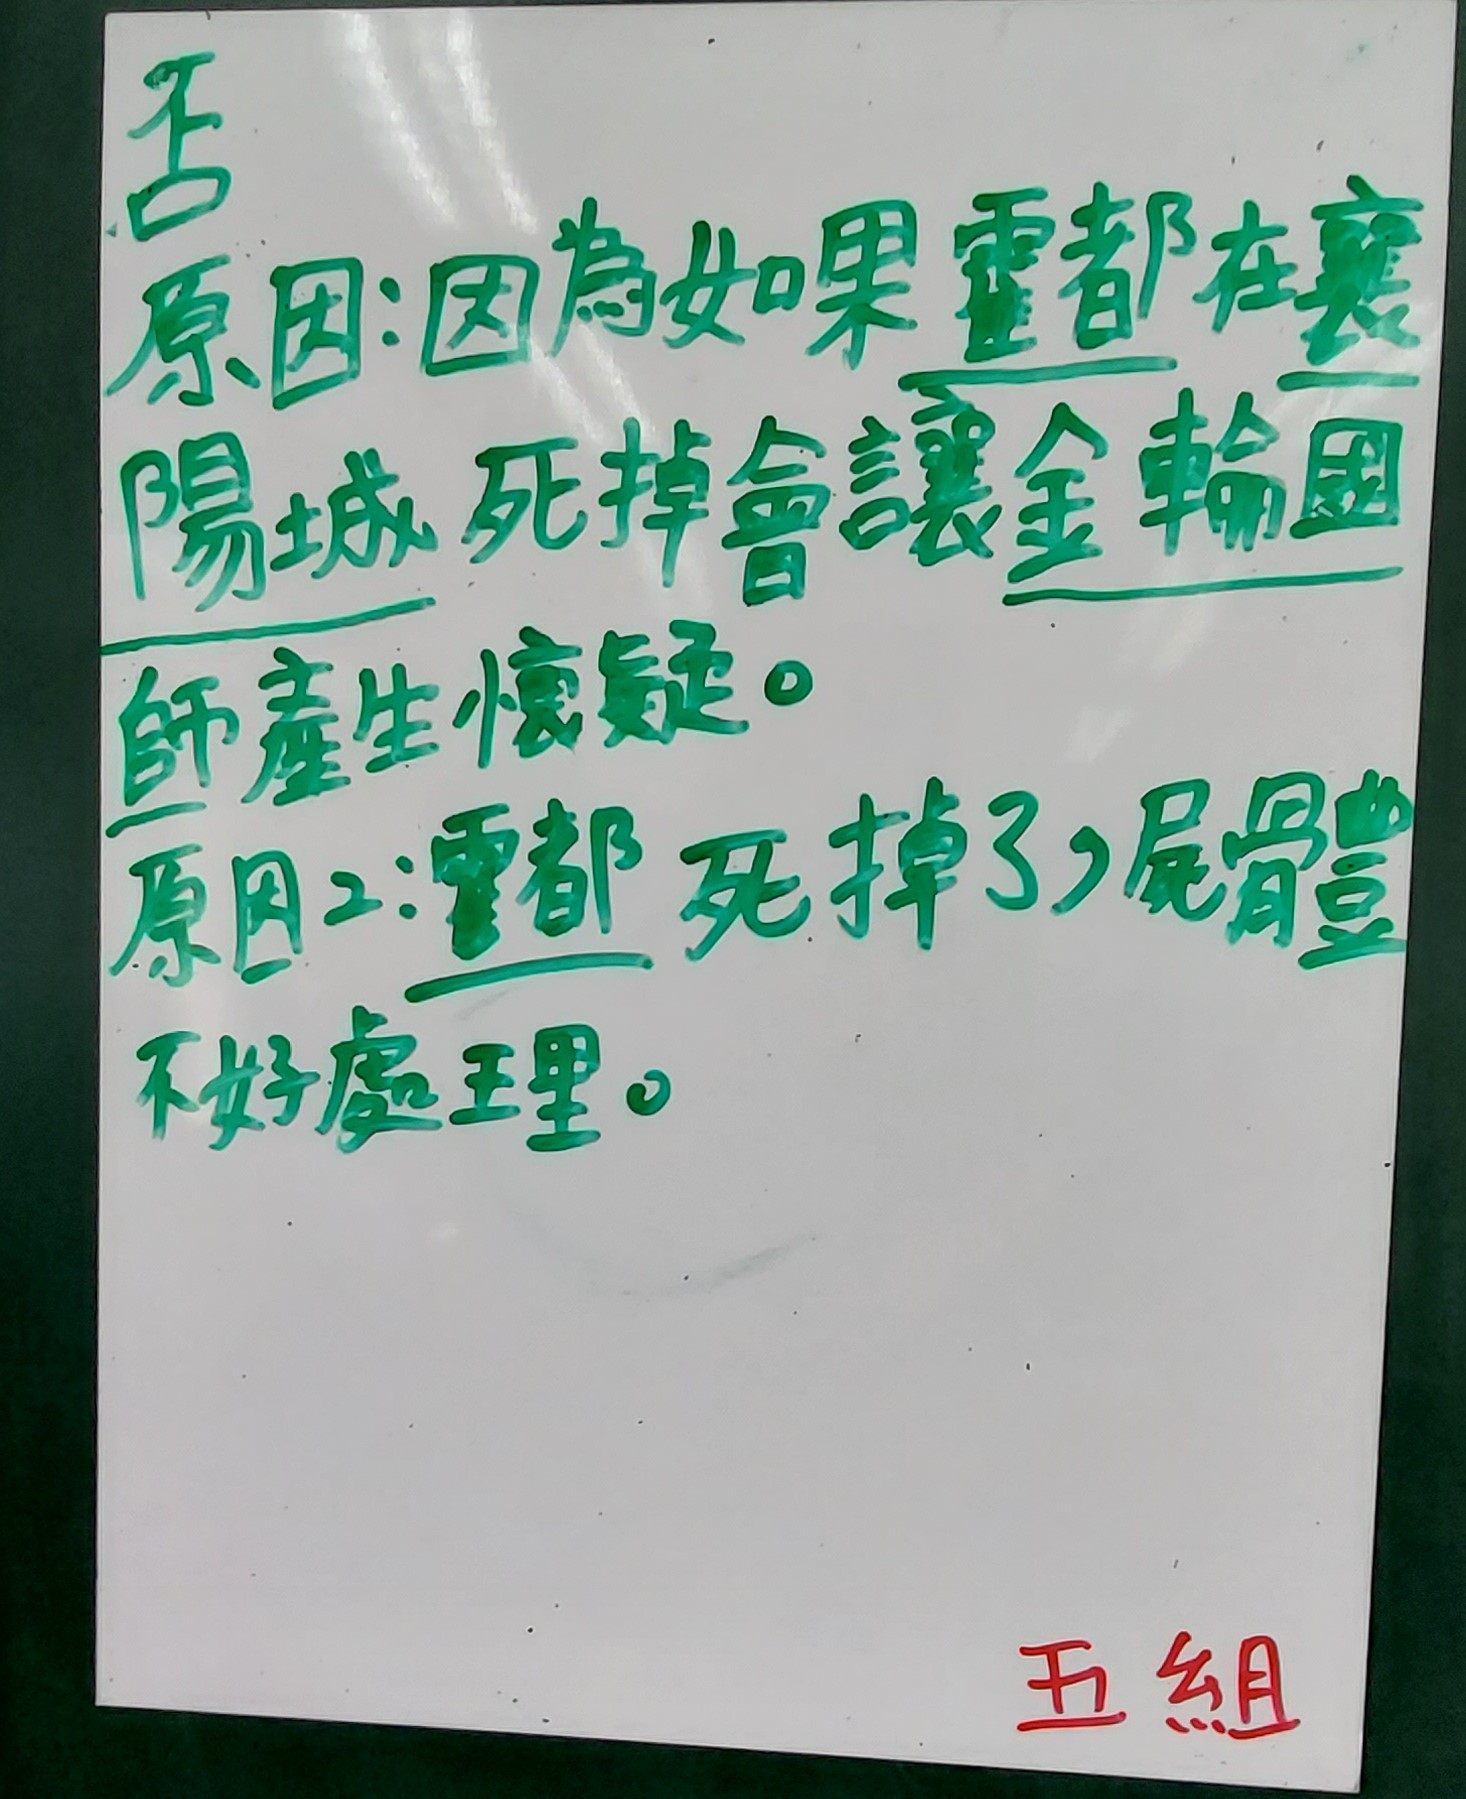 否
原因:因為如果霍都在襄
陽城死掉會讓金輪國
師產生懷疑。
原因2:霍都死掉了,屍體
不好處理。
五組